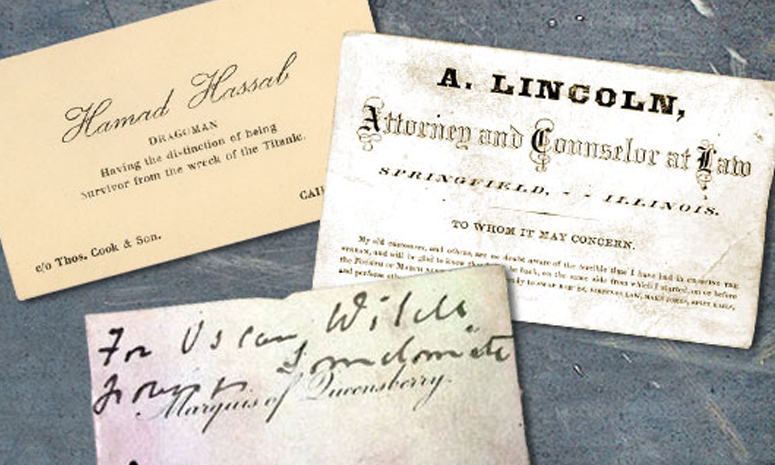 Hamad Hassab
DRAGOMAN
Having the distinction of being
Survivor from the wreck of the Titanic.
CAI
c/o Thos. Cook & Son.
A. LINCOLN,
Attorney and Counselor at Law
SPRINGFIELD, - - ILLINOIS.
TO WHOM IT MAY CONCERN.
My old customers, and others, are no doubt aware of the terrible time I have had in CROSSING THE
STREAM, and will be glad to know back, on the same side from which I started, on or before
the of MARCH to SWAP HORSES, DISPENSE LAW, MAKE JOKES, SPLIT RAILS,
and perform
For Oscar Wilde
Somdomite
Marquis of Queensberry.